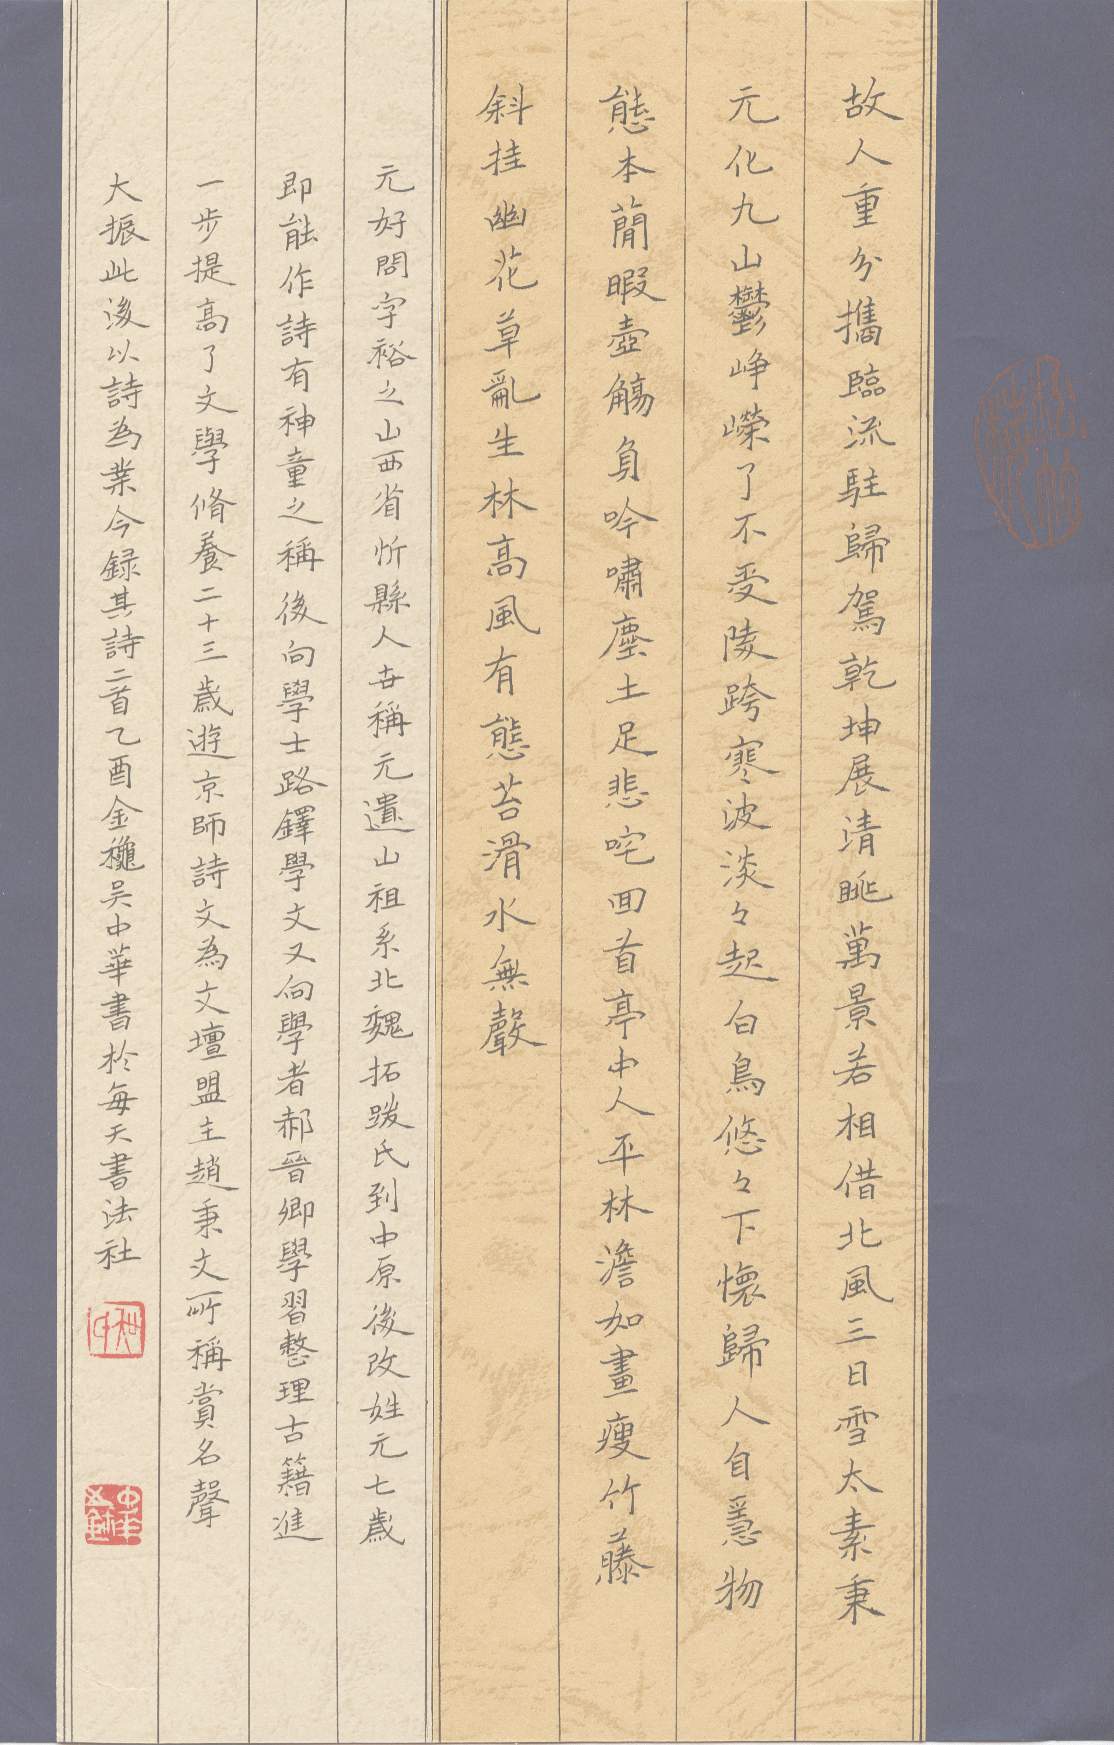 故人重分攜臨流駐歸駕乾坤展清眺萬景若相借北風三日雪太素秉
元化九山鬱崢嶸了不受陵跨寒波淡々起白鳥悠々下懷歸人自急物
態本蕑暇壺觴負吟嘯塵土足悲咤回首亭中人平林澹如畫瘦竹藤
斜挂幽花草亂生林高風有態苔滑水無聲
元好問字裕之山西省忻縣人世稱元遺山祖系北魏拓跋氏到中原後改姓元七歲
即能作詩有神童之稱後向學士路鐸學文又向學者郝晉卿學習整理古籍進
一步提高了文學脩養二十三歲遊京師詩文為文壇盟主趙秉文所稱賞名聲
大振此後以詩為業今録其詩二首乙酉金龝吴中華書於每天書法社